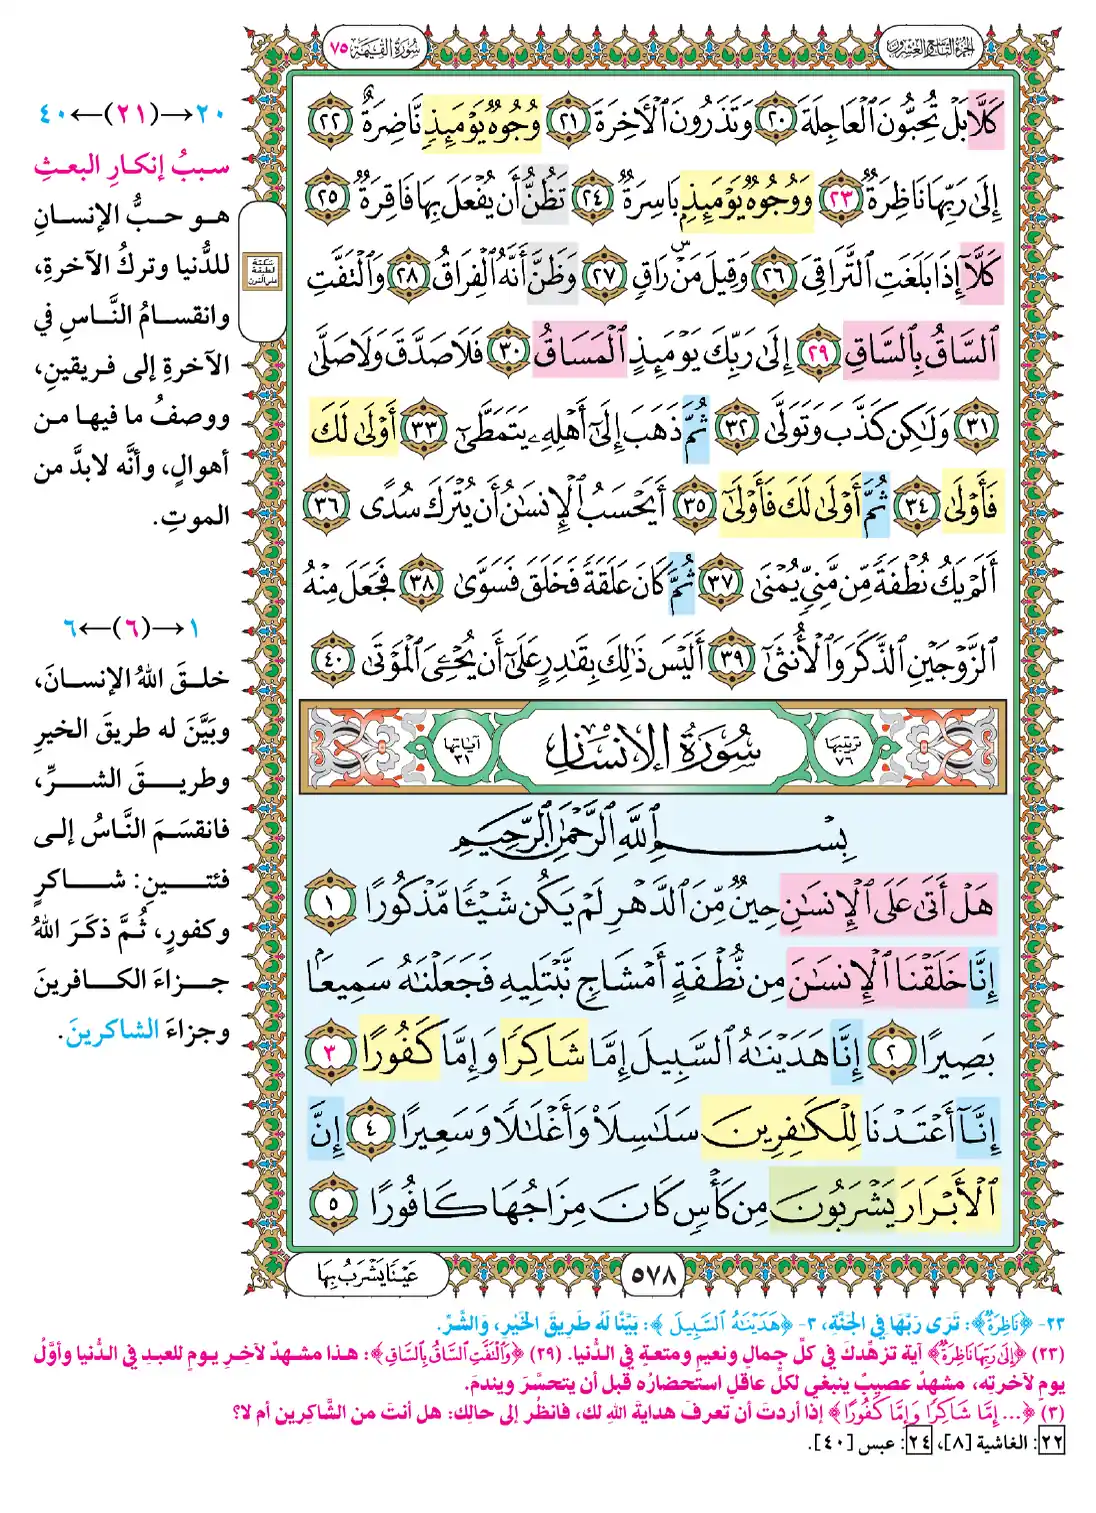 الجزء التاسع والعشرون
سورة القيمة ٧٥
كَلَّا بَلْ تُحِبُّونَ ٱلْعَاجِلَةَ ٢٠ وَتَذَرُونَ ٱلْأَخِرَةَ ٢١ وُجُوهٌ يَوْمَئِذٍ نَّاضِرَةٌ ٢٢
إِلَىٰ رَبِّهَا نَاظِرَةٌ ٢٣ وَوُجُوهٌ يَوْمَئِذٍ بَاسِرَةٌ ٢٤ تَظُنُّ أَن يُفْعَلَ بِهَا فَاقِرَةٌ ٢٥
كَلَّآ إِذَا بَلَغَتِ ٱلتَّرَاقِىَ ٢٦ وَقِيلَ مَنْۜ رَاقٍ ٢٧ وَظَنَّ أَنَّهُ ٱلْفِرَاقُ ٢٨ وَٱلْتَفَّتِ
ٱلسَّاقُ بِٱلسَّاقِ ٢٩ إِلَىٰ رَبِّكَ يَوْمَئِذٍ ٱلْمَسَاقُ ٣٠ فَلَا صَدَّقَ وَلَا صَلَّىٰ
٣١ وَلَٰكِن كَذَّبَ وَتَوَلَّىٰ ٣٢ ثُمَّ ذَهَبَ إِلَىٰٓ أَهْلِهِۦ يَتَمَطَّىٰٓ ٣٣ أَوْلَىٰ لَكَ
فَأَوْلَىٰ ٣٤ ثُمَّ أَوْلَىٰ لَكَ فَأَوْلَىٰٓ ٣٥ أَيَحْسَبُ ٱلْإِنسَٰنُ أَن يُتْرَكَ سُدًى ٣٦
أَلَمْ يَكُ نُطْفَةً مِّن مَّنِىٍّ يُمْنَىٰ ٣٧ ثُمَّ كَانَ عَلَقَةً فَخَلَقَ فَسَوَّىٰ ٣٨ فَجَعَلَ مِنْهُ
ٱلزَّوْجَيْنِ ٱلذَّكَرَ وَٱلْأُنثَىٰٓ ٣٩ أَلَيْسَ ذَٰلِكَ بِقَٰدِرٍ عَلَىٰٓ أَن يُحْـِۧىَ ٱلْمَوْتَىٰ ٤٠
ترتيبها ٧٦
سُورَةُ الإِنسَانِ
آياتها ٣١
بِسْمِ ٱللَّهِ ٱلرَّحْمَٰنِ ٱلرَّحِيمِ
هَلْ أَتَىٰ عَلَى ٱلْإِنسَٰنِ حِينٌ مِّنَ ٱلدَّهْرِ لَمْ يَكُن شَيْـًٔا مَّذْكُورًا ١
إِنَّا خَلَقْنَا ٱلْإِنسَٰنَ مِن نُّطْفَةٍ أَمْشَاجٍ نَّبْتَلِيهِ فَجَعَلْنَٰهُ سَمِيعًۢا
بَصِيرًا ٢ إِنَّا هَدَيْنَٰهُ ٱلسَّبِيلَ إِمَّا شَاكِرًا وَإِمَّا كَفُورًا ٣
إِنَّآ أَعْتَدْنَا لِلْكَٰفِرِينَ سَلَٰسِلَا۟ وَأَغْلَٰلًا وَسَعِيرًا ٤ إِنَّ
ٱلْأَبْرَارَ يَشْرَبُونَ مِن كَأْسٍ كَانَ مِزَاجُهَا كَافُورًا ٥
٥٧٨
عَيْنًا يَشْرَبُ بِهَا
سكتة
لطيفة
على النون
٢٠→(٢١)←٤٠
سببُ إنكارِ البعثِ
هو حبُّ الإنسانِ
للدُّنيا وتركُ الآخرةِ،
وانقسامُ النَّاسِ في
الآخرةِ إلى فريقينِ،
ووصفُ ما فيها من
أهوالٍ، وأنَّه لابدَّ من
الموتِ.
١→(٦)←٦
خلقَ اللهُ الإنسانَ،
وبَيَّنَ له طريقَ الخيرِ
وطريقَ الشرِّ،
فانقسَمَ النَّاسُ إلى
فئتينِ: شاكرٍ
وكفورٍ، ثُمَّ ذكَرَ اللهُ
جزاءَ الكافرينَ
وجزاءَ الشاكرينَ.
٢٣- ﴿نَاظِرَةٌ﴾: تَرَى رَبَّهَا فِي الجَنَّةِ، ٣- ﴿هَدَيْنَٰهُ ٱلسَّبِيلَ﴾: بَيَّنَّا لَهُ طَرِيقَ الخَيْرِ، وَالشَّرِّ.
(٢٣) ﴿إِلَىٰ رَبِّهَا نَاظِرَةٌ﴾ آية تزهِّدك في كلِّ جمالٍ ونعيمٍ ومتعةٍ في الدُّنيا. (٢٩) ﴿وَٱلْتَفَّتِ ٱلسَّاقُ بِٱلسَّاقِ﴾: هذا مشهدٌ لآخرِ يومٍ للعبدِ في الدُّنيا وأوَّلُ
يومٍ لآخرتِه، مشهدٌ عصيبٌ ينبغي لكلِّ عاقلٍ استحضارُه قبل أن يتحسَّر ويندمَ.
(٣) ﴿... إِمَّا شَاكِرًا وَإِمَّا كَفُورًا﴾ إذا أردتَ أن تعرفَ هدايةَ اللهِ لك، فانظُر إلى حالِك: هل أنتَ من الشَّاكِرين أم لا؟
٢٢: الغاشية [٨]، ٢٤: عبس [٤٠].